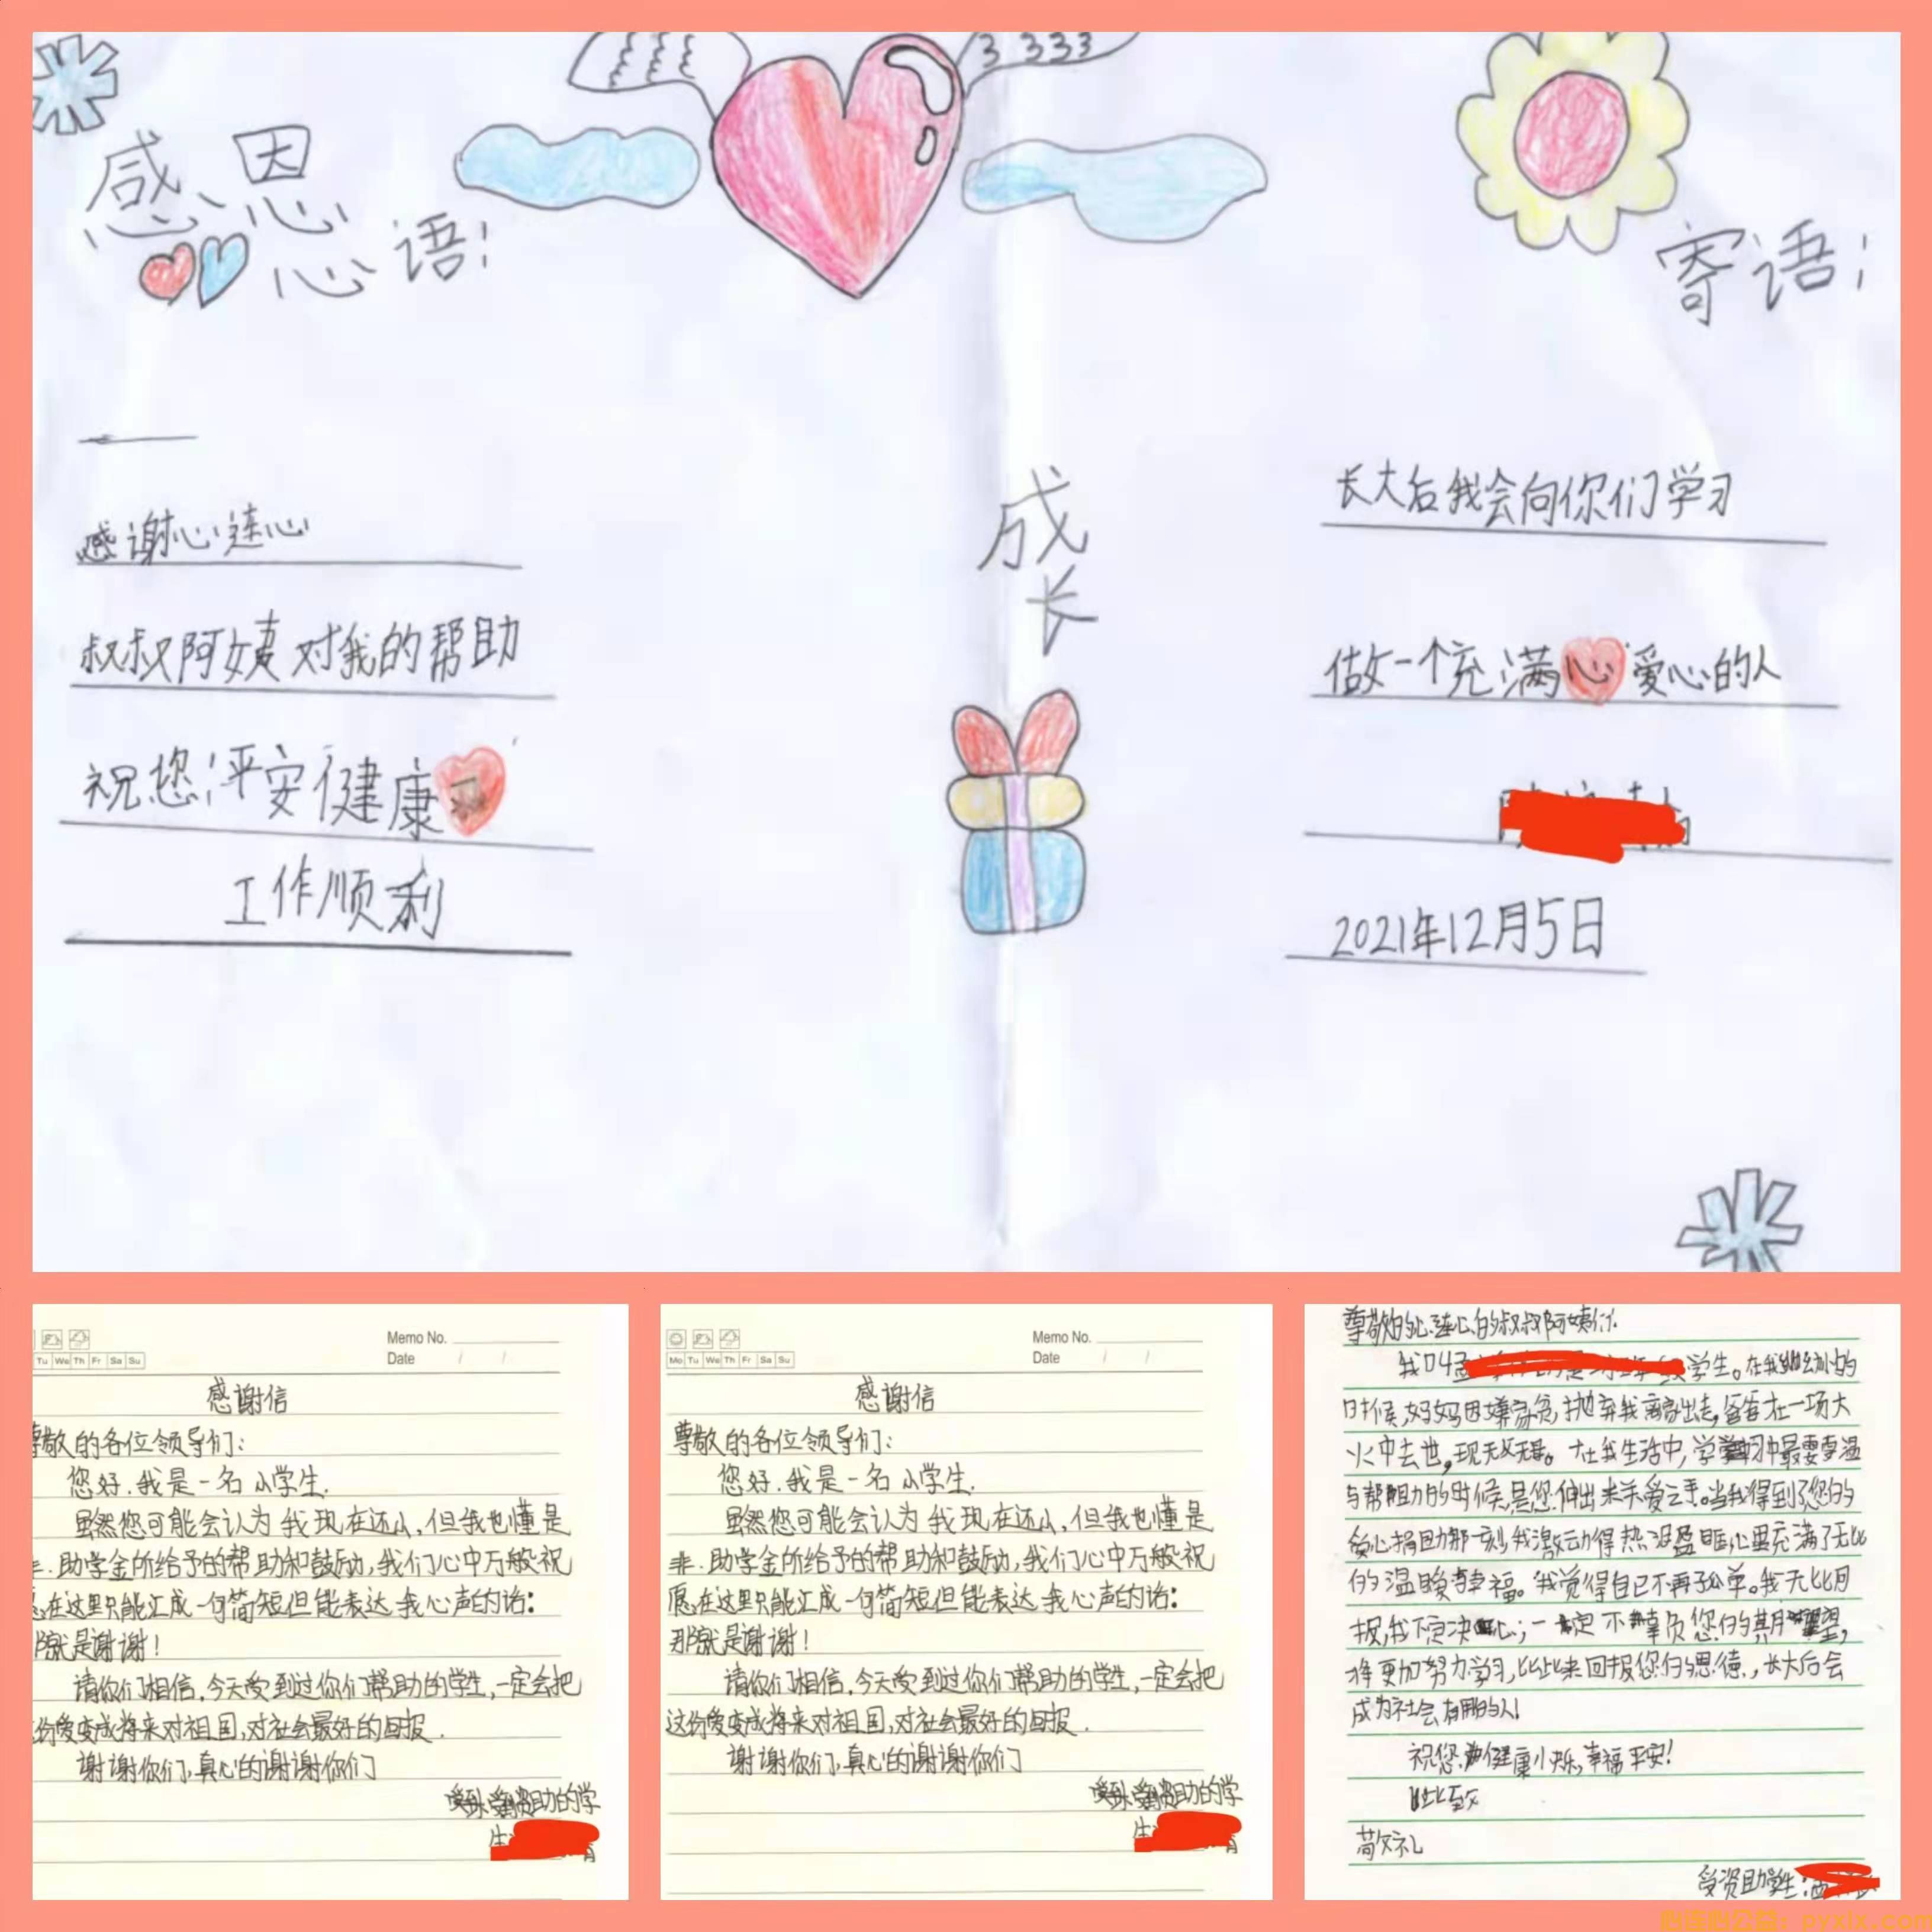 感恩
心语！
寄语；
感谢心连心
叔叔阿姨对我的帮助
祝您：平安健康
工作顺利
成
长
长大后我会向你们学习
做一个充满心爱心的人
2021年12月5日
Memo No.
Tu We Th Fr Sa Su
Date / /
感谢信
尊敬的各位领导们：
您好，我是一名小学生.
虽然您可能会认为我现在还小,但我也懂是
非.助学金所给予的帮助和鼓励,我们心中万般祝
愿在这里只能汇成一句简短但能表达我心声的话：
那就是谢谢！
请你们相信,今天受到过你们帮助的学生,一定会把
这份爱变成将来对祖国,对社会最好的回报.
谢谢你们,真心的谢谢你们
受资助的学
生
Memo No.
Mo Tu We Th Fr Sa Su
Date / /
感谢信
尊敬的各位领导们：
您好，我是一名小学生.
虽然您可能会认为我现在还小,但我也懂是
非.助学金所给予的帮助和鼓励,我们心中万般祝
愿在这里只能汇成一句简短但能表达我心声的话：
那就是谢谢！
请你们相信,今天受到过你们帮助的学生,一定会把
这份爱变成将来对祖国,对社会最好的回报.
谢谢你们,真心的谢谢你们
受资助的学
生
尊敬的心连心的叔叔阿姨们:
我叫 学生。在我幼小的
时候,妈妈因嫌家贫,抛弃我离家出走,爸爸在一场大
火中去世,现无父无母。在我生活中,学习中最需要温
与帮助的时候,是您伸出来关爱之手。当我得到了您的
爱心捐助那一刻,我激动得热泪盈眶,心里充满了无比
的温暖幸福。我觉得自己不再孤单。我无比用
报,我下定决心;一定不辜负您的期望,
将更加努力学习,以此来回报您的恩德,长大后会
成为社会有用的人!
祝您:健康小快乐,幸福平安!
此致
敬礼
受资助学生:
心连心公益：pyxlx.com